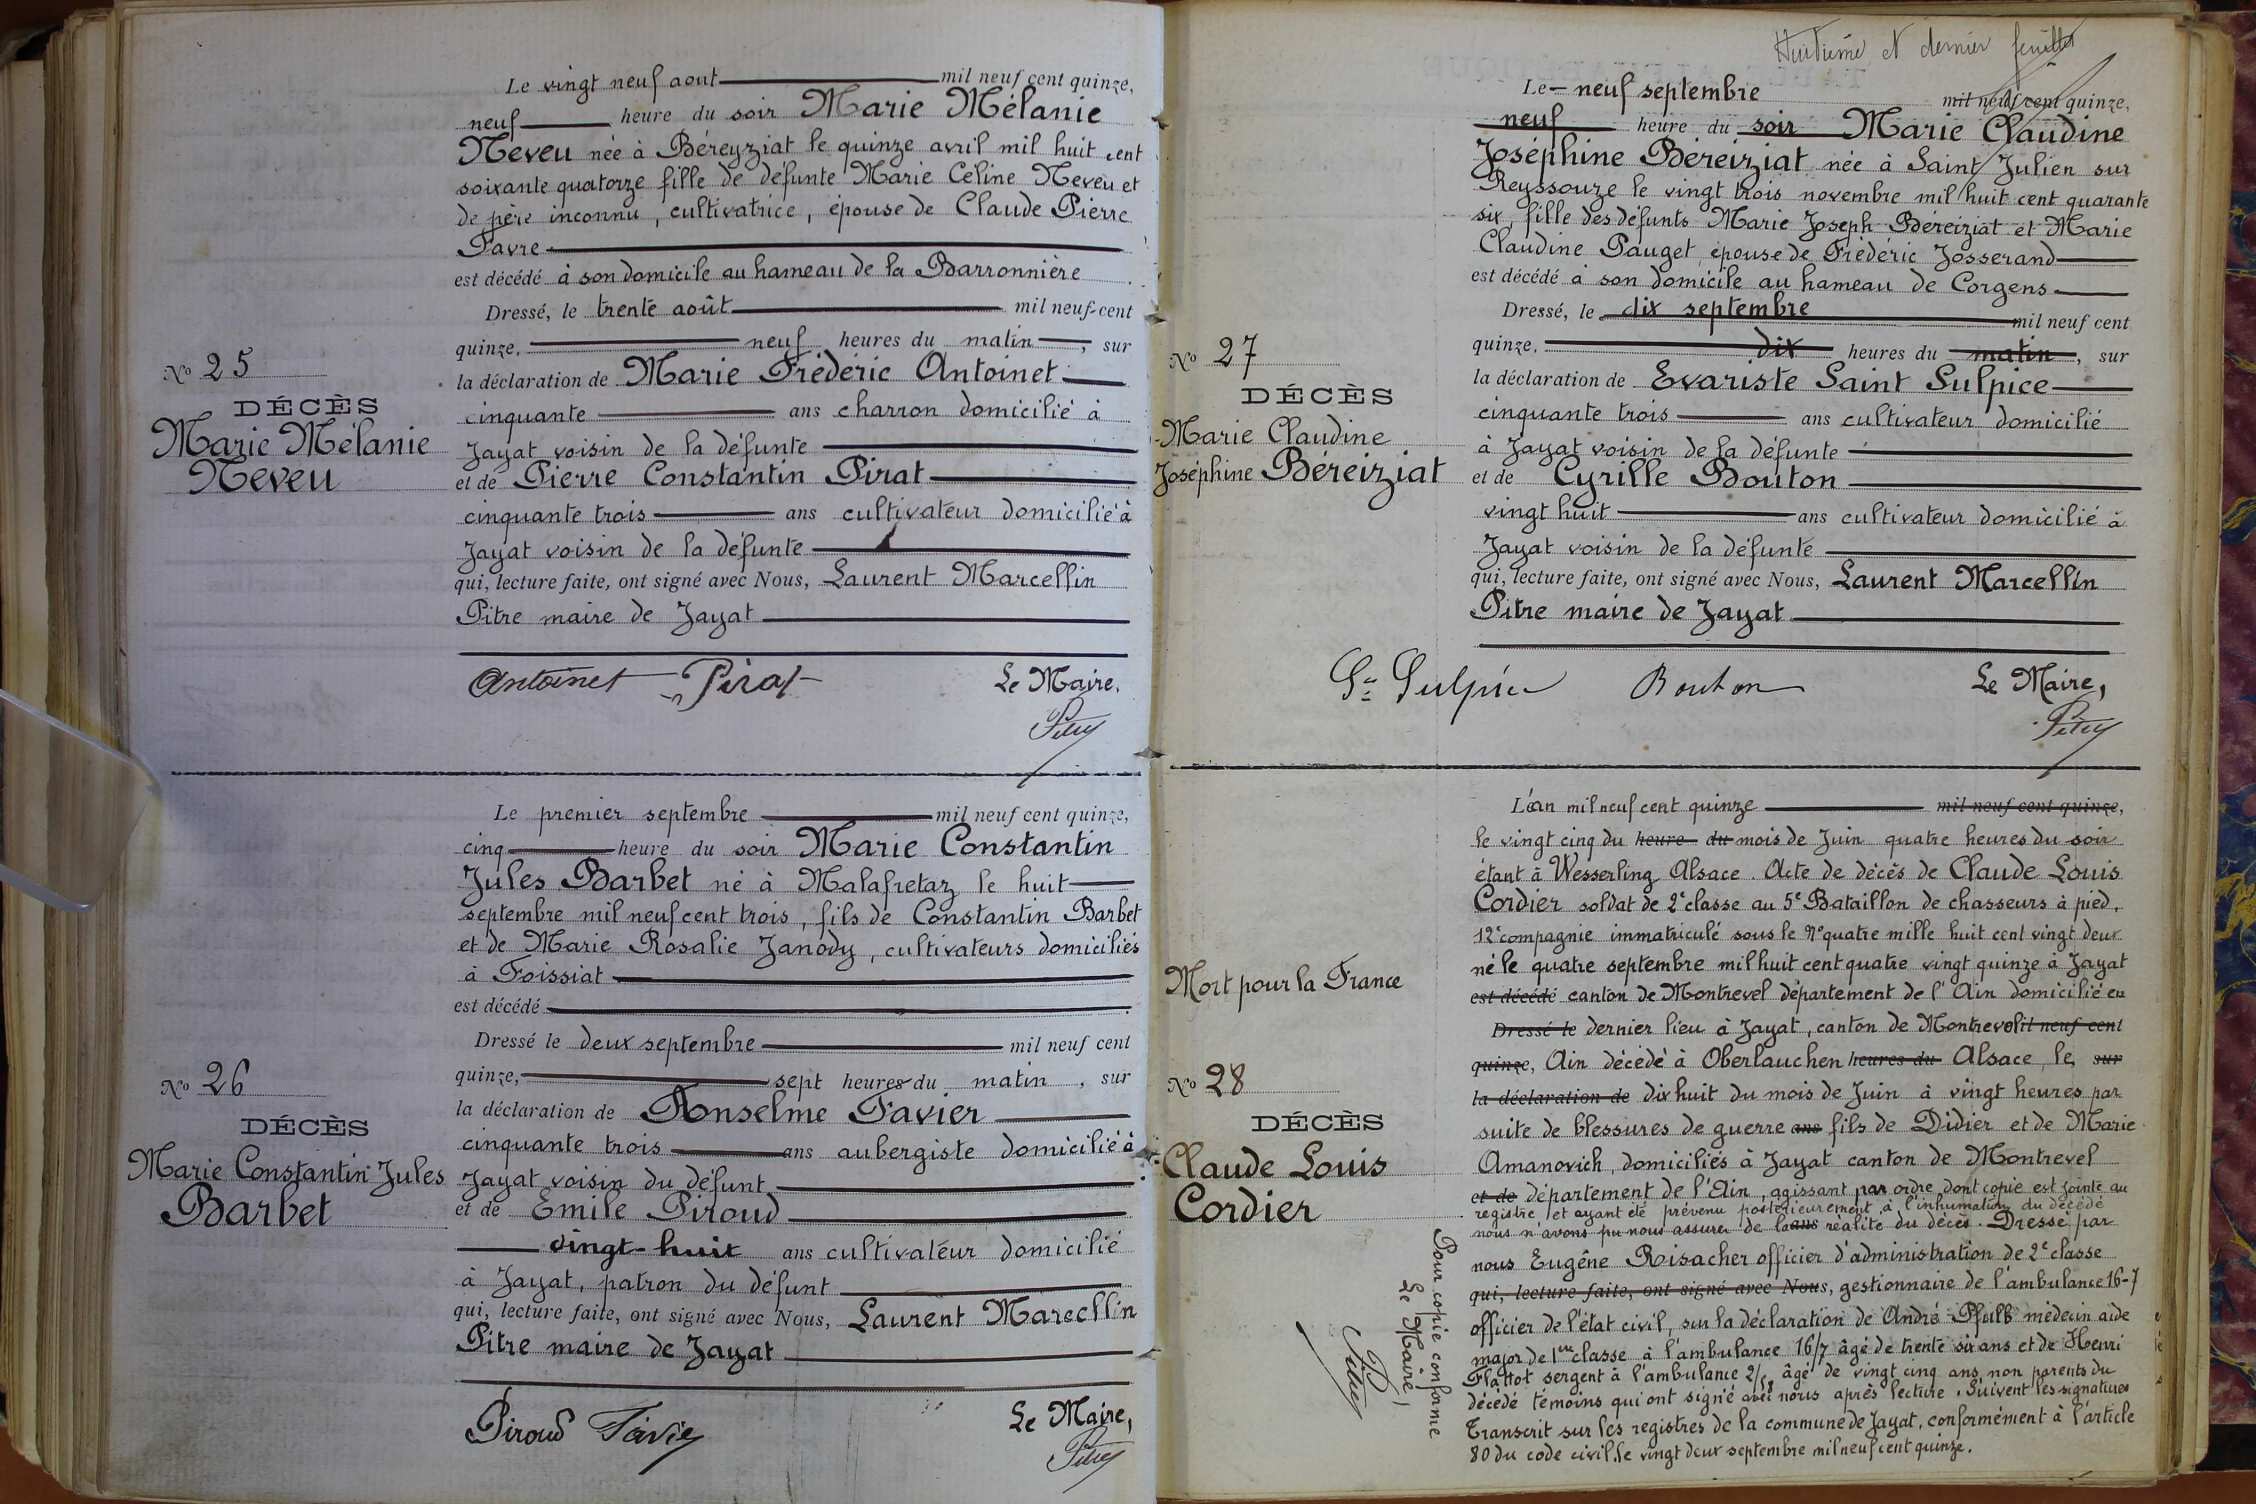 Le vingt neuf aout mil neuf cent quinze,
neuf heure du soir Marie Mélanie
Neveu née à Béreyziat le quinze avril mil huit cent
soixante quatorze fille de défunte Marie Céline Neveu et
de père inconnu, cultivatrice, épouse de Claude Pierre
Favre
est décédé à son domicile au hameau de la Barronnière
Dressé, le trente août mil neuf cent
quinze, neuf heures du matin, sur
No 25
la déclaration de Marie Frédéric Antoinet
DÉCÈS
cinquante ans charron domicilié à
Marie Mélanie
Jayat voisin de la défunte
Neveu
et de Pierre Constantin Pirat
cinquante trois ans cultivateur domicilié à
Jayat voisin de la défunte
qui, lecture faite, ont signé avec Nous, Laurent Marcellin
Pitre maire de Jayat
Antoinet Pirat Le Maire,
Pitre
Le premier septembre mil neuf cent quinze,
cinq heure du soir Marie Constantin
Jules Barbet né à Malafretaz le huit
septembre mil neuf cent trois, fils de Constantin Barbet
et de Marie Rosalie Janody, cultivateurs domiciliés
à Foissiat
est décédé
Dressé le deux septembre mil neuf cent
quinze, sept heures du matin, sur
No 26
la déclaration de Anselme Favier
DÉCÈS
cinquante trois ans aubergiste domicilié à
Marie Constantin Jules
Jayat voisin du défunt
Barbet
et de Emile Piroud
vingt-huit ans cultivateur domicilié
à Jayat, patron du défunt
qui, lecture faite, ont signé avec Nous, Laurent Marecllin
Pitre maire de Jayat
Piroud Favier Le Maire,
Pitre
Huitième et dernier feuillet
Le neuf septembre mil neuf cent quinze,
neuf heure du soir Marie Claudine
Joséphine Béreiziat née à Saint Julien sur
Reyssouze le vingt trois novembre mil huit cent quarante
six, fille des défunts Marie Joseph Béreiziat et Marie
Claudine Pauget, épouse de Frédéric Josserand
est décédé à son domicile au hameau de Corgens
Dressé, le dix septembre mil neuf cent
quinze, dix heures du matin, sur
No 27
la déclaration de Evariste Saint Sulpice
DÉCÈS
cinquante trois ans cultivateur domicilié
Marie Claudine
à Jayat voisin de la défunte
Joséphine Béreiziat
et de Cyrille Bouton
vingt huit ans cultivateur domicilié à
Jayat voisin de la défunte
qui, lecture faite, ont signé avec Nous, Laurent Marcellin
Pitre maire de Jayat
St Sulpice Bouton Le Maire,
Pitre
L'an mil neuf cent quinze mil neuf cent quinze,
le vingt cinq du heure du mois de Juin quatre heures du soir
étant à Wesserling Alsace. Acte de décès de Claude Louis
Cordier soldat de 2e classe au 5e Bataillon de chasseurs à pied,
12e compagnie immatriculé sous le no quatre mille huit cent vingt deux
né le quatre septembre mil huit cent quatre vingt quinze à Jayat
Mort pour la France
est décédé canton de Montrevel département de l'Ain domicilié en
Dressé le dernier lieu à Jayat, canton de Montrevel il neuf cent
quinze, Ain décédé à Oberlauchen heures du Alsace, le, sur
No 28
la déclaration de dix huit du mois de Juin à vingt heures par
DÉCÈS
suite de blessures de guerre ans fils de Didier et de Marie
Claude Louis
Amanovich, domiciliés à Jayat canton de Montrevel
Cordier
et de département de l'Ain, agissant par ordre dont copie est jointe au
registre et ayant été prévenu postérieurement à l'inhumation du décédé
nous n'avons pu nous assurer de la ans réalité du décès. Dressé par
nous Eugêne Roisacher officier d'administration de 2e classe
qui, lecture faite, ont signé avec Nous, gestionnaire de l'ambulance 16-7
officier de l'état civil, sur la déclaration de André Pfulb médecin aide
major de 1ere classe à l'ambulance 16/7 âgé de trente six ans et de Henri
Flattot sergent à l'ambulance âgé de vingt cinq ans non parents du
décédé témoins qui ont signé avec nous après lecture. Suivent les signatures
Transcrit sur les registres de la commune de Jayat, conformément à l'article
80 du code civil. le vingt deux septembre mil neuf cent quinze.
Pour copie conforme
Le Maire,
Pitre